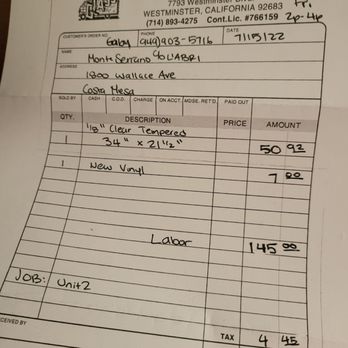 7793 Westminster
WESTMINSTER, CALIFORNIA 92683 Fri
(714) 893-4275 Cont.Lic. #766159 2p-4p
CUSTOMER'S ORDER NO. Gaby PHONE (949)903-5716 DATE 7/15/22
NAME Monte Serrano c/o L'ABRI
ADDRESS 1800 Wallace Ave
Costa Mesa
SOLD BY CASH C.O.D. CHARGE ON ACCT. MDSE. RET'D. PAID OUT
QTY. DESCRIPTION PRICE AMOUNT
1/8" Clear Tempered
1 34" x 21 1/2" 50 92
1 New Vinyl 7 00
Labor 145 00
JOB: Unit 2
TAX 4 45
CEIVED BY